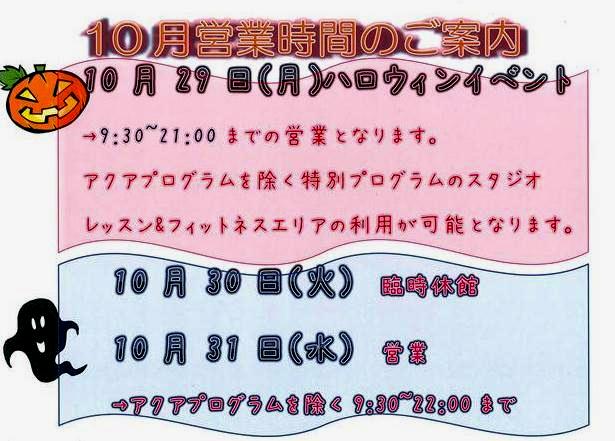 10月営業時間のご案内
10月29日(月)ハロウィンイベント
→9:30~21:00までの営業となります。
アクアプログラムを除く特別プログラムのスタジオ
レッスン&フィットネスエリアの利用が可能となります。
10月30日(火) 臨時休館
10月31日(水) 営業
→アクアプログラムを除く9:30~22:00まで